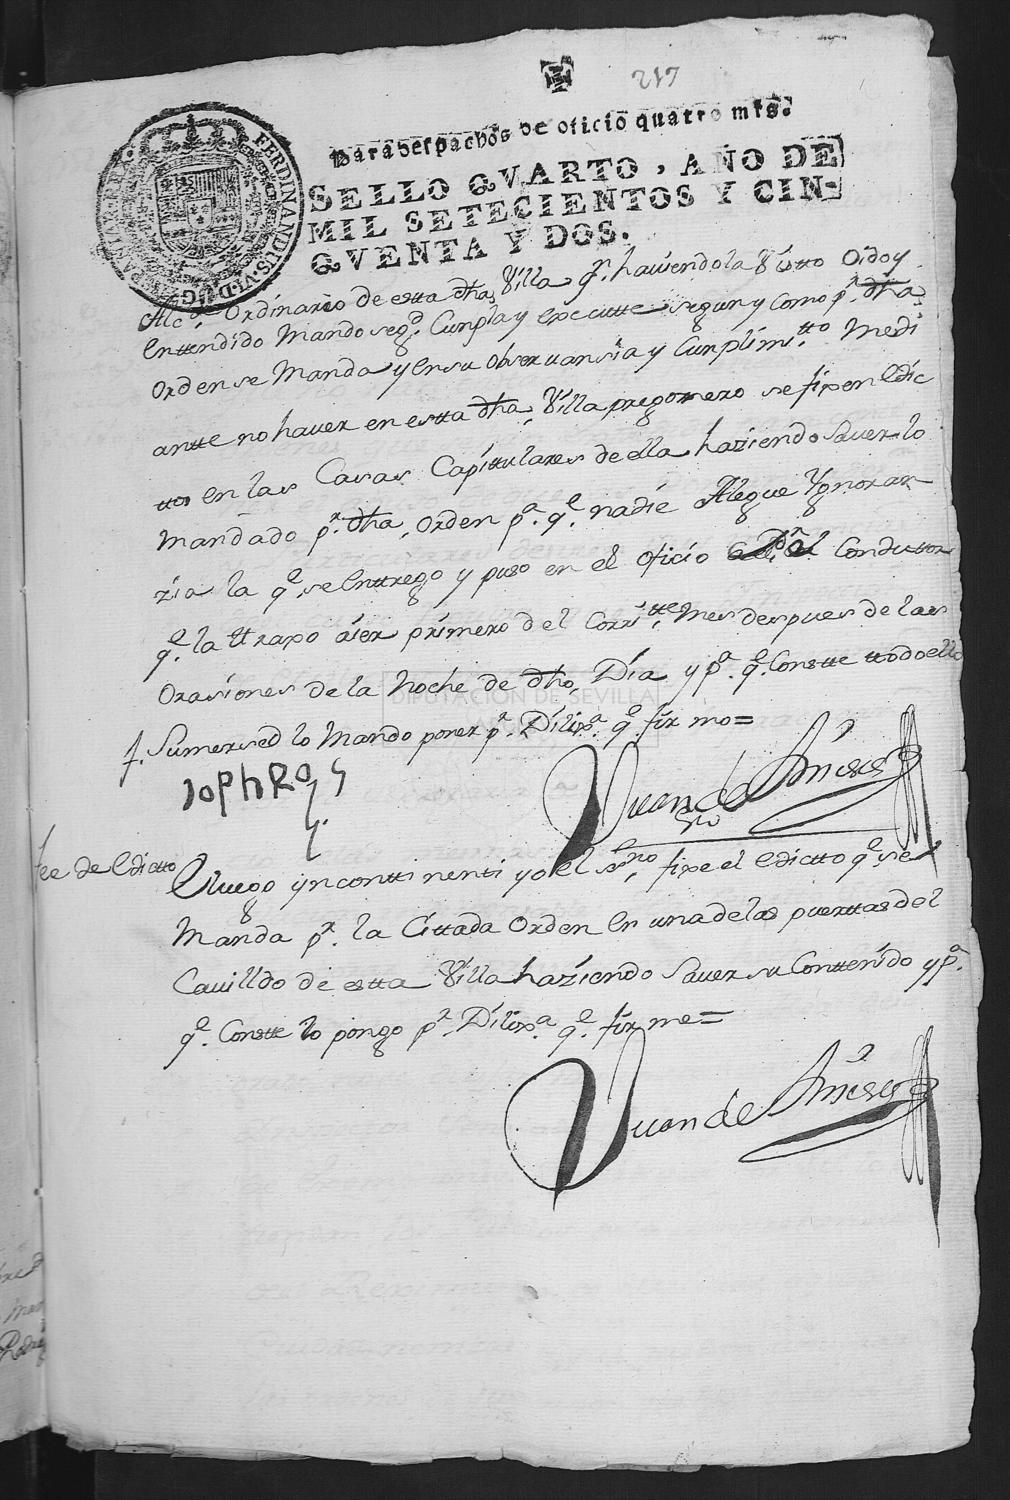 217
Para despachos de oficio quatro mrs.
SELLO QVARTO, AÑO DE
MIL SETECIENTOS Y CIN-
QVENTA Y DOS.
FERDINANDUS.VI.D.G.
Alc.e Ordinario de estta dha, Villa q.n haviendola Vistto Oido y
enttendido Mando se g.e Cunpla y executte segun y como p.r dha,
Orden se Manda y en su observansia y Cunplim.tto Medi
antte no haver en estta dha, Villa pregonero se fixen Edic
ttos en las Casas Capittulares de ella haziendo Saver lo
Mandado p.r dha, Orden p.a q.e nadie Alegue Ygnoran
zia la q.e se enttrego y puso en el oficio el Conducttor
q.e la ttraxo aier primero del Corr.tte Mes despues de las
Orasiones de la Noche de dho, Dia y p.a q.e Constte ttodo ello
f. Sumersed lo Mando poner p.r Dilix.a q.e firmo=
Juan de
Ess.no
fee de Edictto
E luego yncontti nentti yo el ess.no, fixe el Edictto q.e se
Manda p.r la Cittada Orden en una de las puerttas del
Cavilldo de estta Villa haziendo Saver su Conttenido y p.a
q.e Constte lo pongo p.r Dilix.a q.e firme=
Juan de
DIPUTACIÓN DE SEVILLA